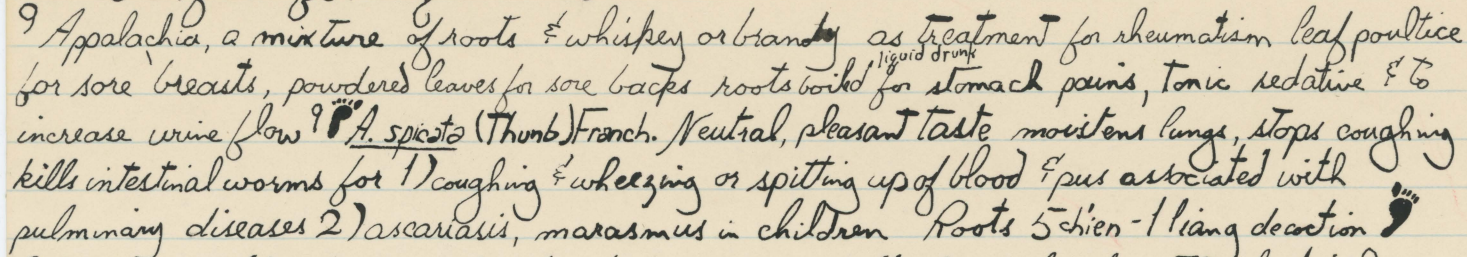 9 Appalachia, a mixture of roots & whiskey or brandy as treatment for rheumatism leaf poultice
liquid drunk
for sore breasts, powdered leaves for sore backs roots boiled for stomach pains, tonic sedative & to
increase urine flow 9 A. spicata (Thunb) Franch. Neutral, pleasant taste moistens lungs, stops coughing
kills intestinal worms for 1) coughing & wheezing or spitting up of blood & pus associated with
pulminary diseases 2) ascariasis, marasmus in children Roots 5 chien - 1 liang decoction